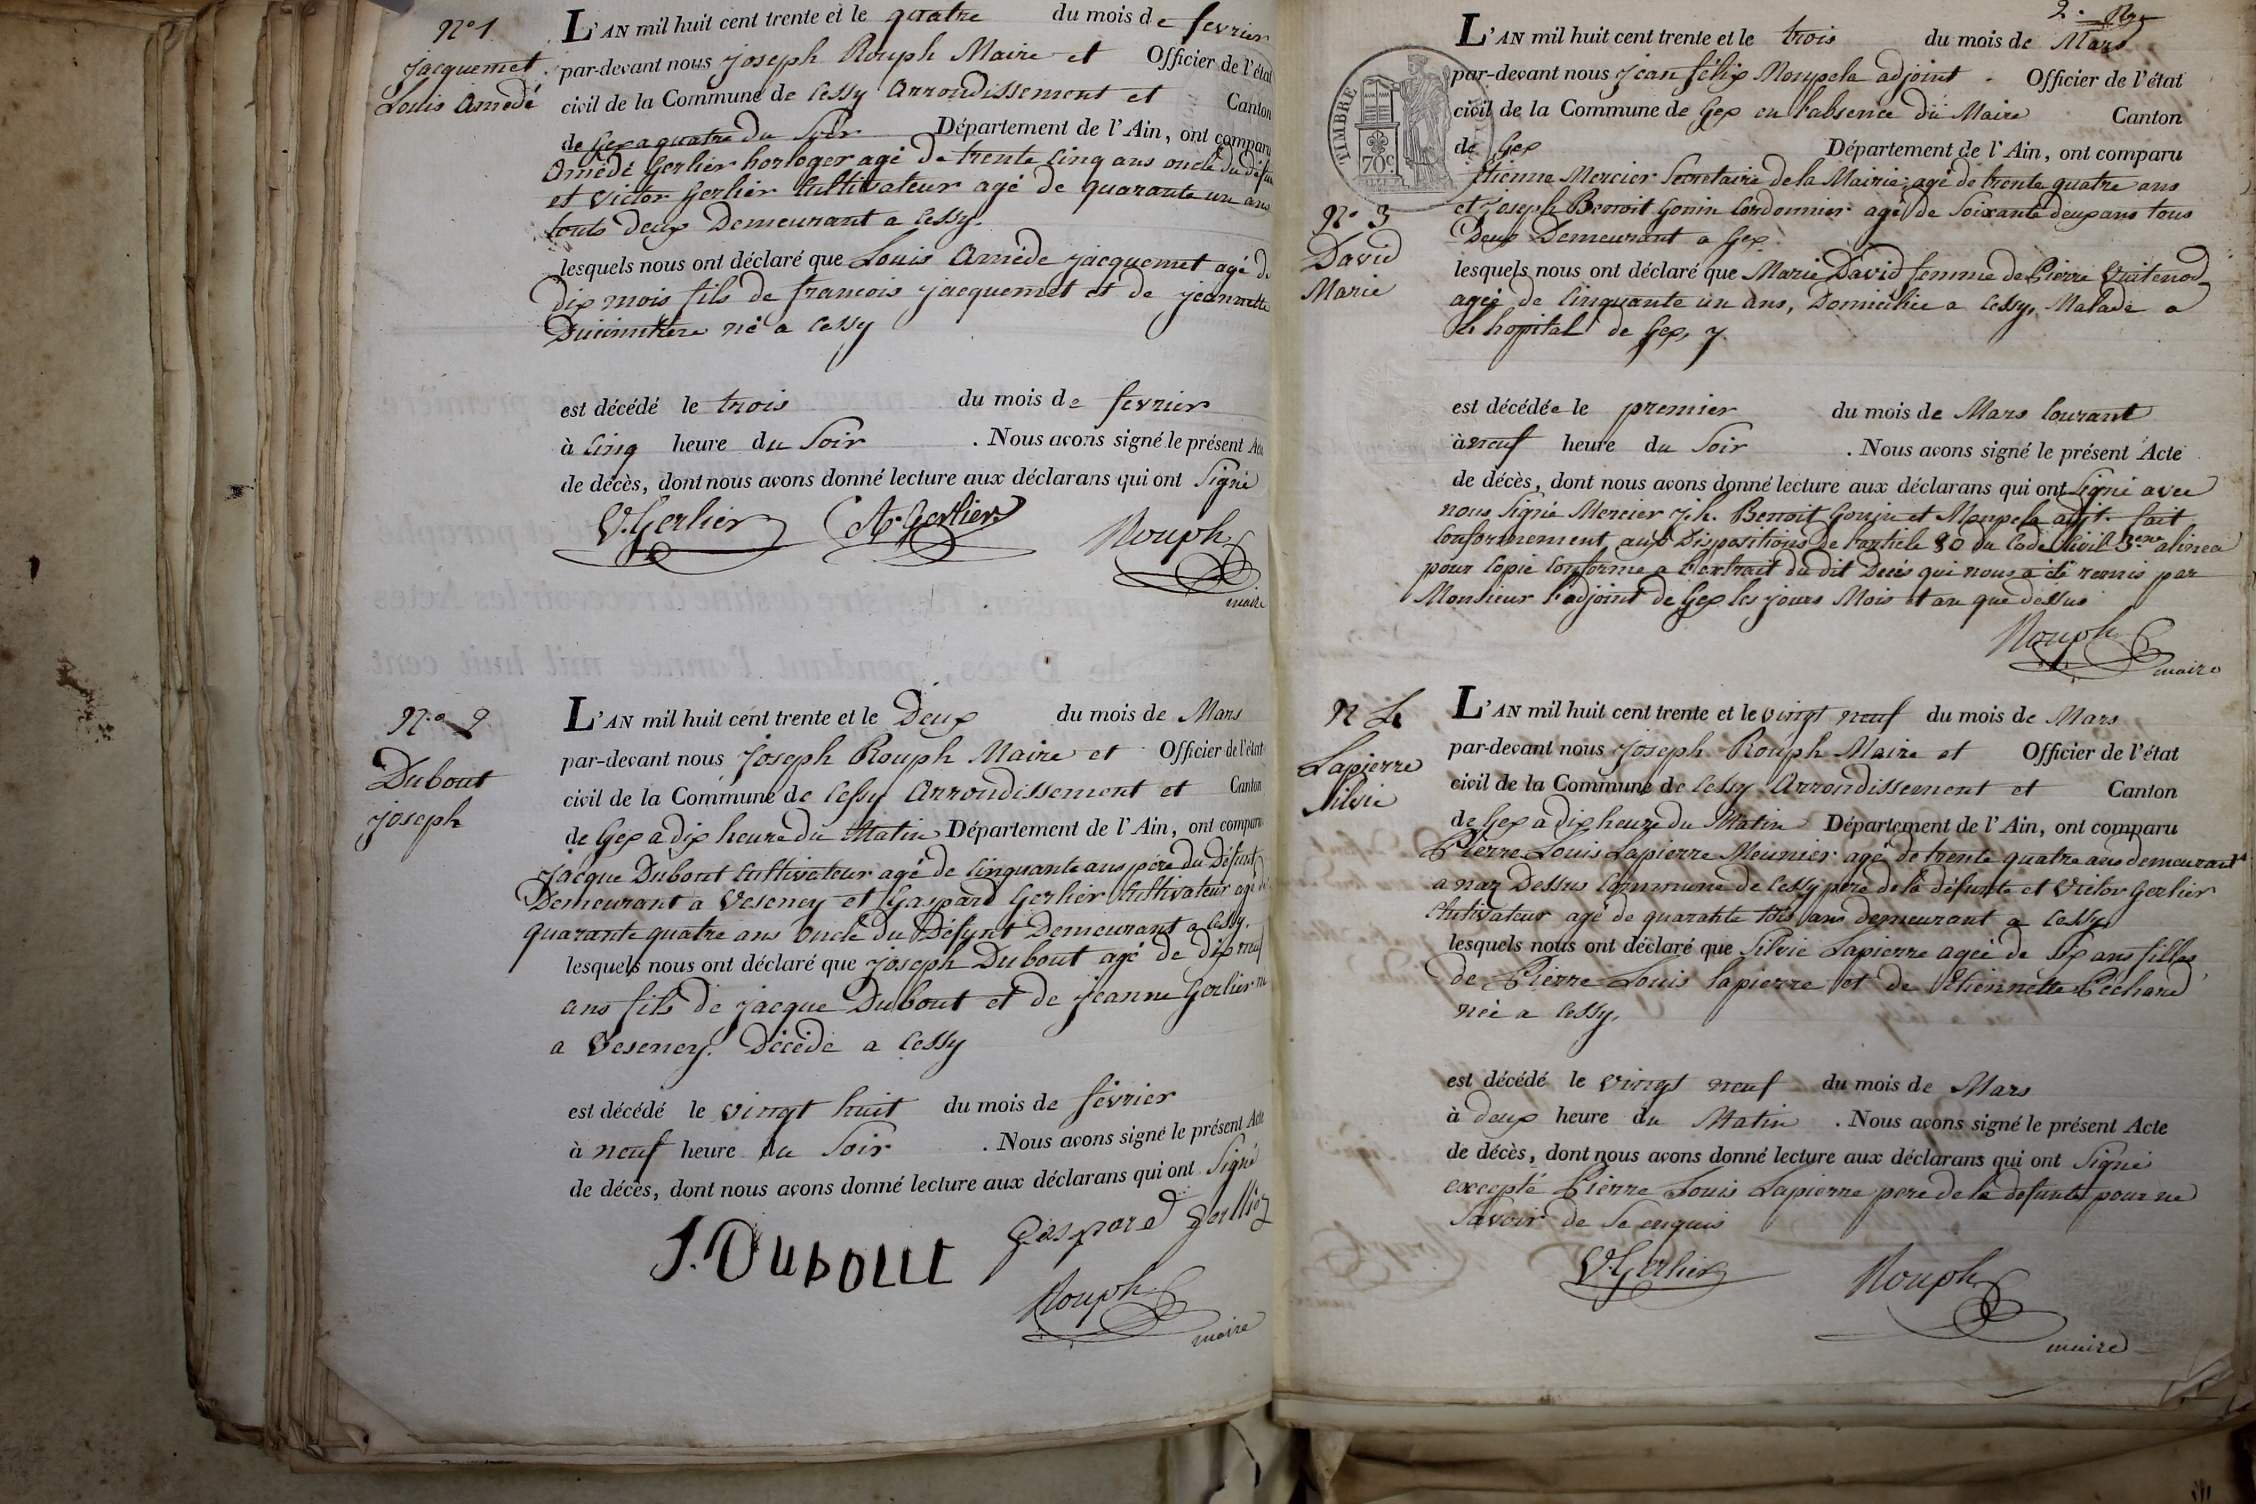 N° 1
Jacquemet
Louis Amédé
L'AN mil huit cent trente et le quatre du mois de fevrier
par-devant nous joseph Rouph Maire et Officier de l'état
civil de la Commune de Cessy Arrondissement et Canton
de Gex a quatre du Soir Département de l'Ain, ont comparu
Amédé Gerlier horloger agé de trente cinq ans oncle du défunt
et Victor Gerlier Cultivateur agé de quarante un ans
touts deux Demeurant a Cessy.
lesquels nous ont déclaré que Louis Amédé jacquemet agé de
dix mois fils de francois jacquemet et de jeannette
Ducimitiere né a Cessy
est décédé le trois du mois de fevrier
à cinq heure du Soir . Nous avons signé le présent Acte
de décès, dont nous avons donné lecture aux déclarans qui ont Signé
V. Gerlier A. Gerlier Rouph
maire
N° 2
Dubout
joseph
L'AN mil huit cent trente et le Deux du mois de Mars
par-devant nous joseph Rouph Maire et Officier de l'état
civil de la Commune de Cessy Arrondissement et Canton
de Gex a dix heure du Matin Département de l'Ain, ont comparu
Jacque Dubout Cultivateur agé de cinquante ans pére du Défunt
Demeurant a Veseney et Gaspard Gerlier Cultivateur agé de
quarante quatre ans oncle du Défunt Demeurant a Cessy.
lesquels nous ont déclaré que joseph Dubout agé de dix neuf
ans fils de jacque Dubout et de jeanne Gerlier né
a Veseney. Décédé a Cessy
est décédé le vingt huit du mois de février
à neuf heure du Soir . Nous avons signé le présent Acte
de décès, dont nous avons donné lecture aux déclarans qui ont Signé
J. Dubout Gaspard Gerllier
Rouph
maire
2.
TIMBRE
70c
L'AN mil huit cent trente et le trois du mois de Mars
par-devant nous jean félix Moupela adjoint Officier de l'état
civil de la Commune de Gex en l'absence du Maire Canton
de Gex Département de l'Ain, ont comparu
Etienne Mercier Secretaire de la Mairie, agé de trente quatre ans
N° 3
David
Marie
et joseph Benoit Gonin Cordonnier agé de soixante deux ans tous
Deux Demeurant a Gex.
lesquels nous ont déclaré que Marie David femme de Pierre Vuitenod
agée de Cinquante un ans, Domiciliée a Cessy, Malade a
L'hopital de Gex, y
est décédée le premier du mois de Mars Courant
à neuf heure du Soir . Nous avons signé le présent Acte
de décès, dont nous avons donné lecture aux déclarans qui ont Signé avec
nous Signé Mercier jh. Benoit Gonin et Moupela adjt. fait
Conformement aux Dispositions de l'article 80 du Code Civil 3eme alinea
pour Copie Conforme a l'extrait du dit Décès qui nous a été remis par
Monsieur l'adjoint de Gex les jours Mois et an que dessus
Rouph
maire
N 4
Lapierre
Silvie
L'AN mil huit cent trente et le vingt neuf du mois de Mars
par-devant nous joseph Rouph Maire et Officier de l'état
civil de la Commune de Cessy Arrondissement et Canton
de Gex a dix heure du Matin Département de l'Ain, ont comparu
Pierre Louis Lapierre Meunier agé de trente quatre ans demeurant
a naz Dessus Commune de Cessy pére de la défunte et Victor Gerlier
Cultivateur agé de quarante trois ans demeurant a Cessy,
lesquels nous ont déclaré que Silvie Lapierre agée de six ans filles
de Pierre Louis Lapierre et de Etiennette Péchard
née a Cessy,
est décédé le vingt neuf du mois de Mars
à deux heure du Matin . Nous avons signé le présent Acte
de décès, dont nous avons donné lecture aux déclarans qui ont Signé
excepté Pierre Louis Lapierre pere de la defunte pour ne
Savoir de Se enquis
V. Gerlier Rouph
maire